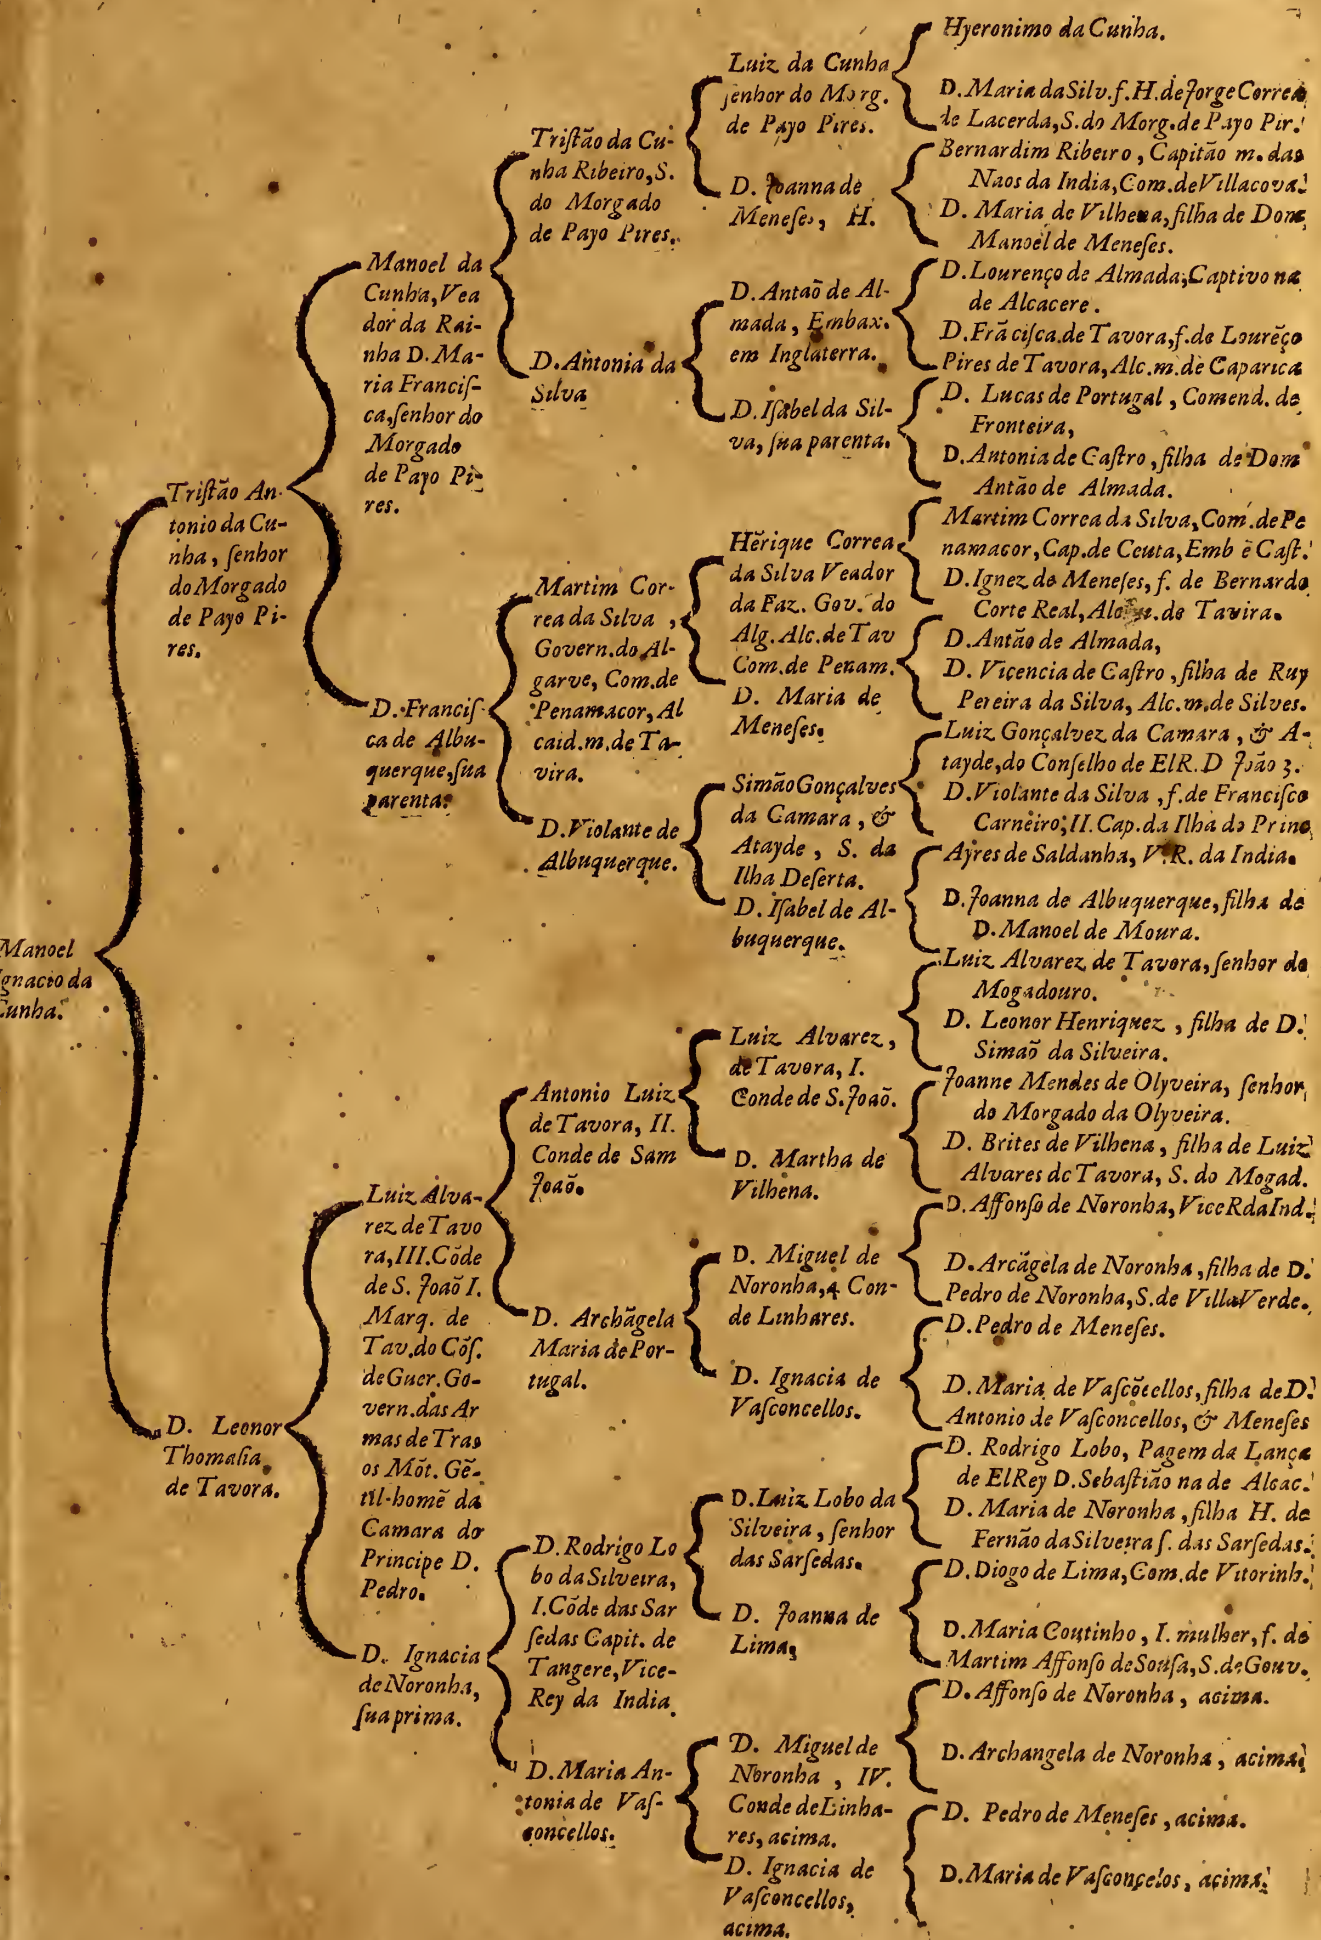 Manoel
gnacio da
Cunha.
Triſtão An-
tonio da Cu-
nha, ſenhor
do Morgado
de Payo Pi-
res.
D. Leonor
Thomaſia
de Tavora.
Manoel da
Cunha, Vea
dor da Rai-
nha D. Ma-
ria Franciſ-
ca, ſenhor do
Morgado
de Payo Pi-
res.
D. Franciſ-
ca de Albu-
querque, ſua
parenta.
Luiz Alva-
rez de Tavo
ra, III. Cõde
de S. Joaõ I.
Marq. de
Tav. do Cõſ.
de Guer. Go-
vern. das Ar
mas de Tras
os Mõt. Gẽ-
til-homẽ da
Camara do
Principe D.
Pedro.
D. Ignacia
de Noronha,
ſua prima.
Triſtão da Cu-
nha Ribeiro, S.
do Morgado
de Payo Pires.
D. Antonia da
Silva
Martim Cor-
rea da Silva,
Govern. do Al-
garve, Com. de
Penamacor, Al
caid. m. de Ta-
vira.
D. Violante de
Albuquerque.
Antonio Luiz
de Tavora, II.
Conde de Sam
Joaõ.
D. Archãgela
Maria de Por-
tugal.
D. Rodrigo Lo
bo da Silveira,
I. Cõde das Sar
ſedas Capit. de
Tangere, Vice-
Rey da India
D. Maria An-
tonia de Vaſ-
concellos.
Luiz da Cunha
ſenhor do Morg.
de Payo Pires.
D. Joanna de
Meneſes, H.
D. Antaõ de Al-
mada, Embax.
em Inglaterra.
D. Iſabel da Sil-
va, ſua parenta.
Hẽrique Correa
da Silva Veador
da Faz. Gov. do
Alg. Alc. de Tav
Com. de Penam.
D. Maria de
Meneſes.
Simão Gonçalves
da Camara, &
Atayde, S. da
Ilha Deſerta.
D. Iſabel de Al-
buquerque.
Luiz Alvarez,
de Tavora, I.
Conde de S. Joaõ.
D. Martha de
Vilhena.
D. Miguel de
Noronha, 4 Con-
de Linhares.
D. Ignacia de
Vaſconcellos.
D. Luiz Lobo da
Silveira, ſenhor
das Sarſedas.
D. Joanna de
Lima,
D. Miguel de
Noronha, IV.
Conde de Linha-
res, acima.
D. Ignacia de
Vaſconcellos,
acima.
Hyeronimo da Cunha.
D. Maria da Silv. f. H. de Jorge Correa
de Lacerda, S. do Morg. de Payo Pir.
Bernardim Ribeiro, Capitão m. das
Naos da India, Com. de Villacova.
D. Maria de Vilhena, filha de Dom
Manoel de Meneſes.
D. Lourenço de Almada, Captivo na
de Alcacere.
D. Frãciſca de Tavora, f. de Lourẽço
Pires de Tavora, Alc. m. de Caparica
D. Lucas de Portugal, Comend. de
Fronteira,
D. Antonia de Caſtro, filha de Dom
Antão de Almada.
Martim Correa da Silva, Com. de Pe
namacor, Cap. de Ceuta, Emb ẽ Caſt.
D. Ignez de Meneſes, f. de Bernardo
Corte Real, Alc. m. de Tavira.
D. Antão de Almada,
D. Vicencia de Caſtro, filha de Ruy
Pereira da Silva, Alc. m. de Silves.
Luiz Gonçalvez da Camara, & A-
tayde, do Conſelho de ElR. D João 3.
D. Violante da Silva, f. de Franciſco
Carneiro, II. Cap. da Ilha do Princ
Ayres de Saldanha, V. R. da India.
D. Joanna de Albuquerque, filha de
D. Manoel de Moura.
Luiz Alvarez de Tavora, ſenhor do
Mogadouro.
D. Leonor Henriquez, filha de D.
Simaõ da Silveira.
Joanne Mendes de Olyveira, ſenhor
do Morgado da Olyveira.
D. Brites de Vilhena, filha de Luiz
Alvares de Tavora, S. do Mogad.
D. Affonſo de Noronha, Vice R da Ind.
D. Arcãgela de Noronha, filha de D.
Pedro de Noronha, S. de Villa Verde.
D. Pedro de Meneſes.
D. Maria de Vaſcõcellos, filha de D.
Antonio de Vaſconcellos, & Meneſes
D. Rodrigo Lobo, Pagem da Lança
de ElRey D. Sebaſtião na de Alcac.
D. Maria de Noronha, filha H. de
Fernão da Silveira ſ. das Sarſedas.
D. Diogo de Lima, Com. de Vitorinh.
D. Maria Coutinho, I. mulher, f. de
Martim Affonſo de Souſa, S. de Gouv.
D. Affonſo de Noronha, acima.
D. Archangela de Noronha, acima.
D. Pedro de Meneſes, acima.
D. Maria de Vaſconcelos, acima.